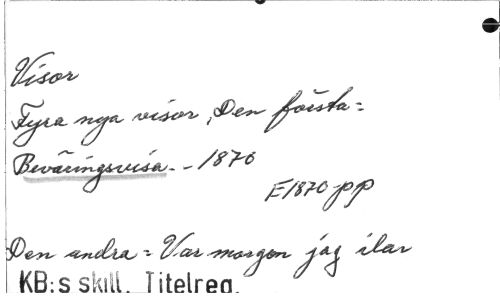 Visor
Fyra nya visor, Den första =
Beväringsvisa. - 1870
E1870 pp
Den andra = Var morgon jag ilar
KB:s skill. Titelreg.